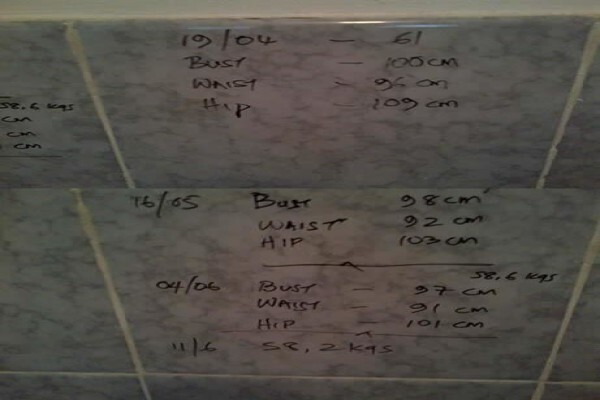 19/04 - 61
BUST - 100 cm
WAIST - 96 cm
HIP - 109 cm
58.6 kgs
cm
cm
cm
16/05 BUST 98 cm
WAIST 92 cm
HIP 103 cm
58.6 kgs
04/06 BUST - 97 cm
WAIST - 91 cm
HIP - 101 cm
11/6 58.2 kgs